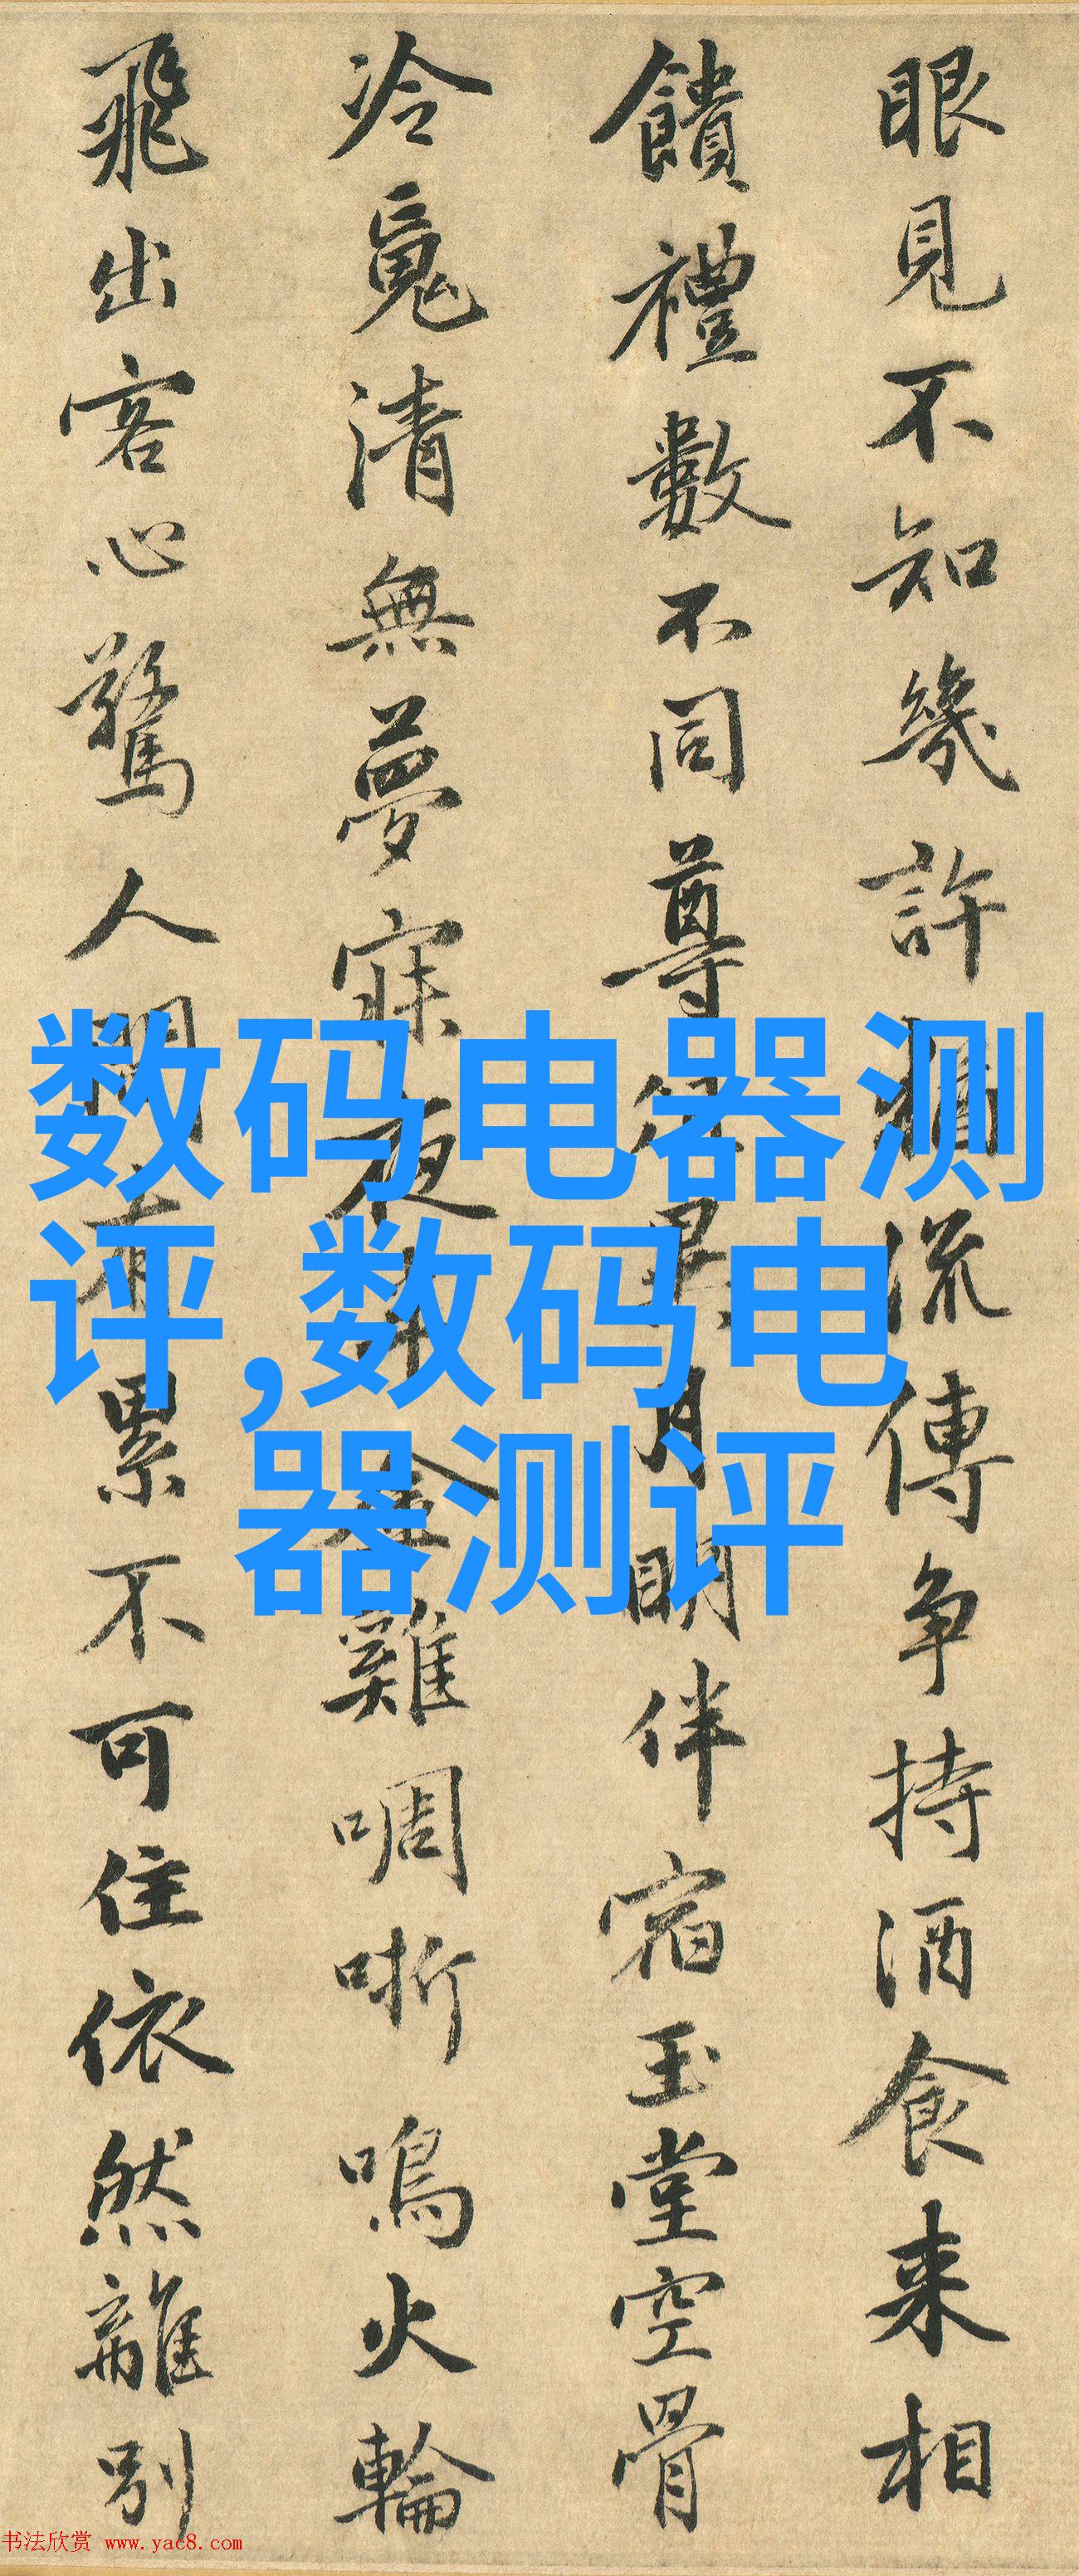 眼見不知幾許猶流傳争持酒食来相
饋禮數不同尊俎異月明伴宿玉堂空骨
冷魂清無夢寐夜半金雞啁哳鳴火輪
飛出客心驚人間有累不可住依然離別
数码电器测
评,数码电
器测评
书法欣赏 www.yac8.com